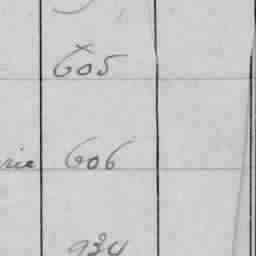 605
rie 606
934